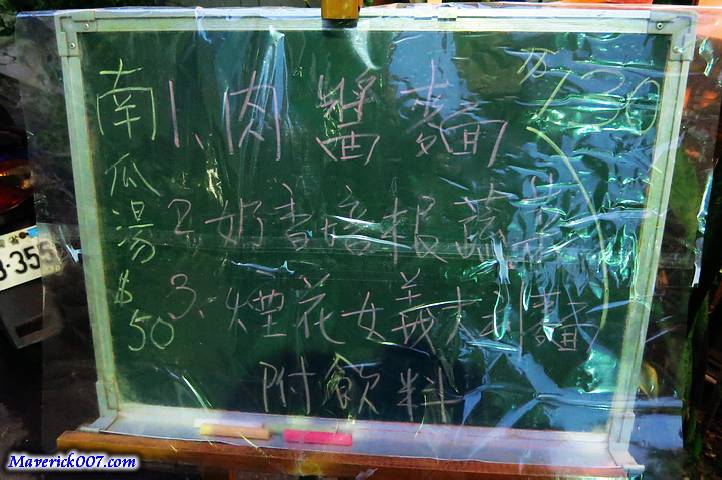 南瓜湯$50
1、肉醬麵
$130
2、奶香培根蔬
3、煙花女義大利麵
附飲料
3-355
Maverick007.com